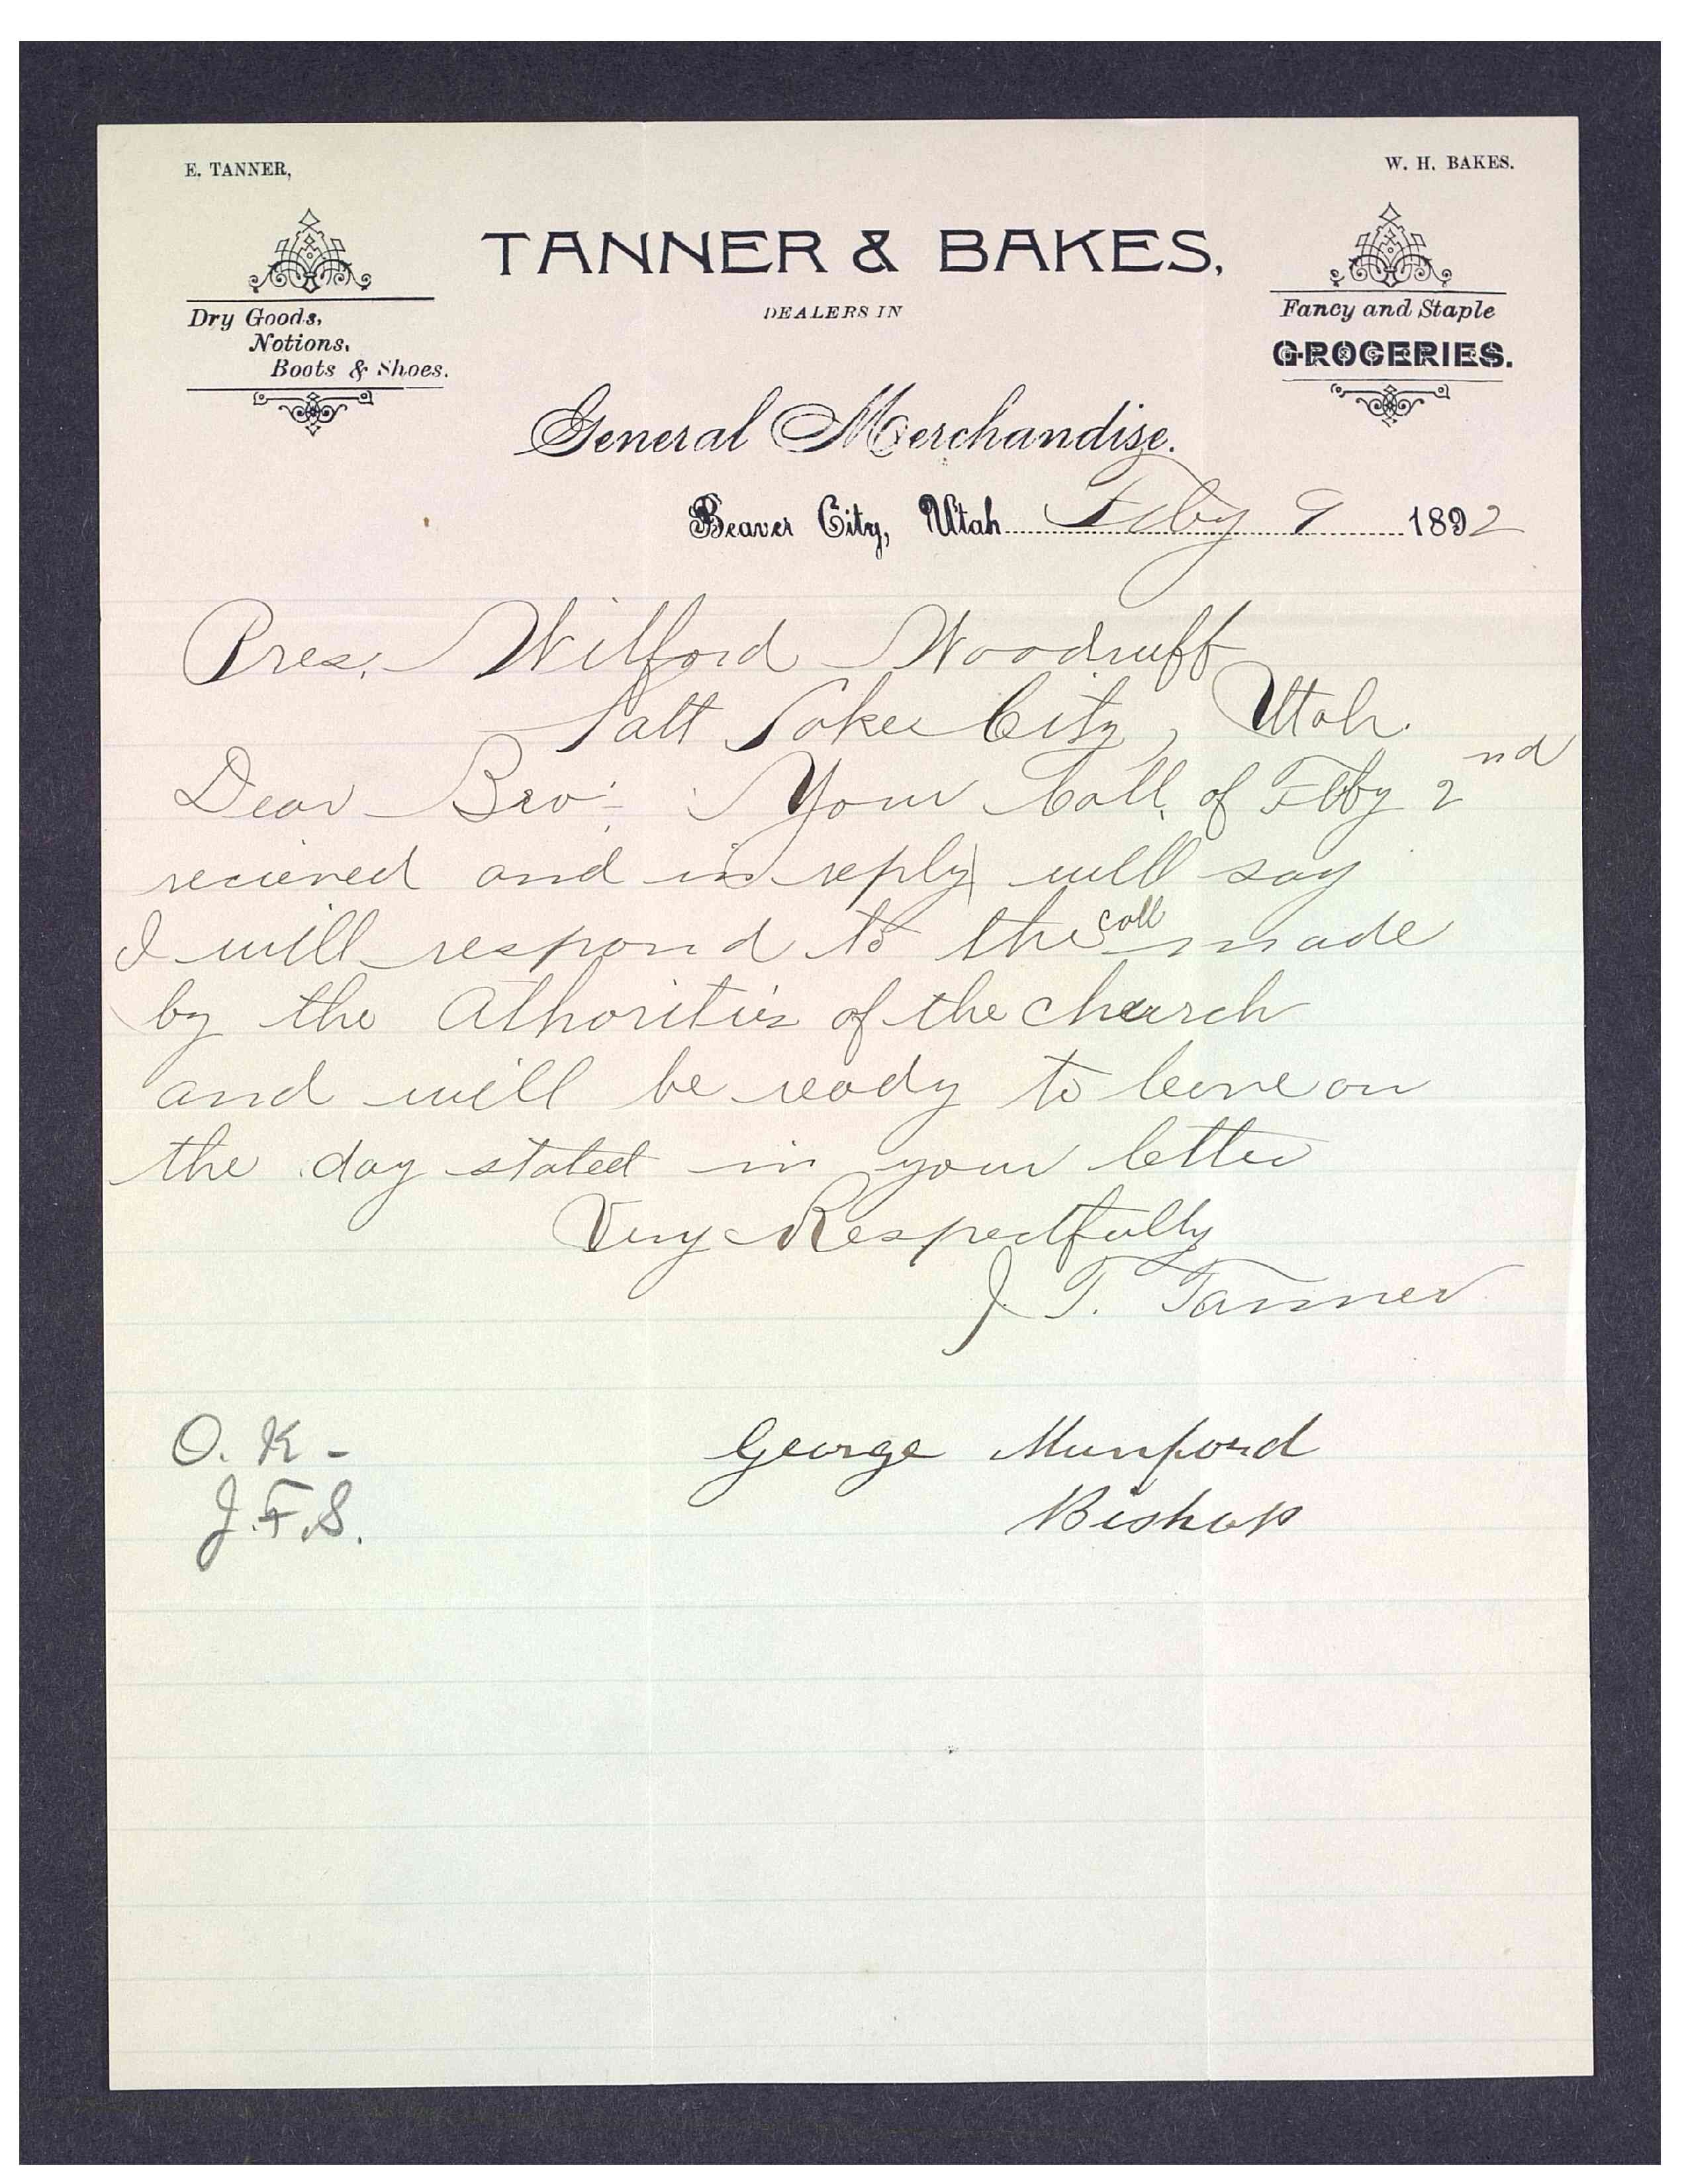 E. TANNER,
W. H. BAKES.
TANNER & BAKES,
DEALERS IN
Dry Goods,
Notions,
Boots & Shoes.
Fancy and Staple
GROCERIES.
General Merchandise.
Beaver City, Utah Feby 9 1892
Pres. Wilford Woodruff
Salt Lake City, Utah.
Dear Bro: Your Call of Feby 2nd
recieved and in reply will say
I will respond to the call made
by the Athorities of the church
and will be ready to leave on
the day stated in your letter
Very Respectfully
J. T. Tanner
O. K -
J. F. S.
George Munford
Bishop